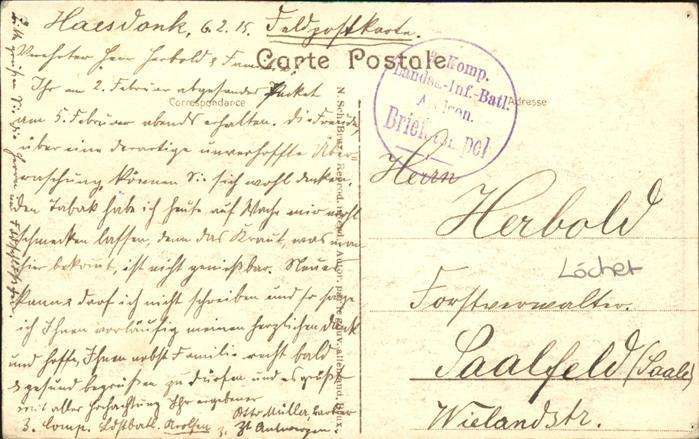 Haesdonk, 6.2.15. Feldpostkarte.
Verehrter Herr Herbold & Familie
Carte Postale
Correspondance
Adresse
Ihr am 2. Februar abgesandtes Packet
am 5. Februar abends erhalten. Di Freude,
über eine derartige unverhoffte Über-
raschung, können Sie sich wohl denken.
Den Tabak habe ich heute auf Wache mir wohl
schmecken lassen, denn das Kraut, was man
hier bekomt, ist nicht genießbar. Neues
kann & darf ich nicht schreiben und so sage
ich Ihnen vorläufig meinen herzlichen Dank
und hoffe, Ihnen nebst Familie recht bald
& gesund begrüßen zu dürfen und es grüßt
mit aller Hochachtung Ihr ergebener
Otto Müller,
3. Comp. Ldstbatl. z. Zt. Antwerpen.
Komp.
Landst.-Inf.-Batl.
Briefstempel
Herrn
Herbold
Löcher
Forstverwalter.
Saalfeld (Saale)
Wielandstr.